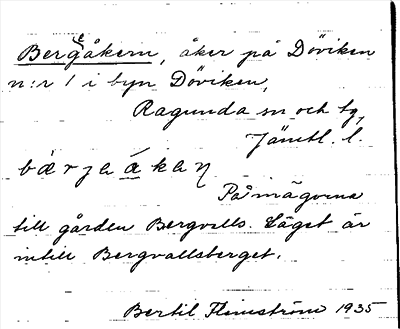 Bergeåkern, åker på Döviken
n:r 1 i byn Döviken,
Ragunda sn och tg,
Jämtl. l.
På mägorna
till gården Bergvalls. Läget är
intill Bergvallsberget.
Bertil Flemström 1935